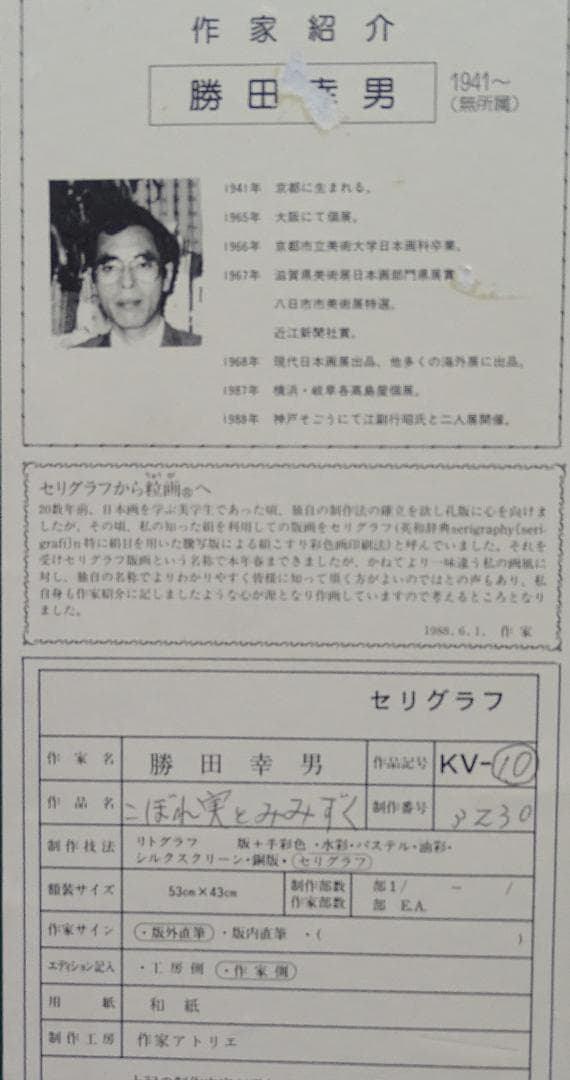 作家紹介
勝田幸男
1941〜
(無所属)
1941年 京都に生まれる。
1965年 大阪にて個展。
1966年 京都市立美術大学日本画科卒業。
1967年 滋賀県美術展日本画部門県展賞
八日市市美術展特選。
近江新聞社賞。
1968年 現代日本画展出品、他多くの海外展に出品。
1987年 横浜・岐阜各高島屋個展。
1988年 神戸そごうにて江副行昭氏と二人展開催。
りゅう が
セリグラフから粒画㊞へ
20数年前、日本画を学ぶ美学生であった頃、独自の制作法の確立を欲し孔版に心を向けま
したが、その頃、私の知った絹を利用しての版画をセリグラフ(英和辞典serigraphy〔seri-
grafi〕n特に絹目を用いた謄写版による絹こすり彩色画印刷法)と呼んでいました。それを
受けセリグラフ版画という名称で本年春まできましたが、かねてより一味違う私の画風に
対し、独自の名称でよりわかりやすく皆様に知って頂く方がよいのではとの声もあり、私
自身も作家紹介に記しましたような心が源となり作画していますので考えるところとなり
ました。
1988.6.1. 作家
セリグラフ
作家名 勝田幸男 作品記号 KV-10
作品名 こぼれ実とみみずく 制作番号 3230
制作技法 リトグラフ 版+手彩色・水彩・パステル・油彩・
シルクスクリーン・銅版・セリグラフ
額装サイズ 53cm×43cm 制作部数 部1/ － /
作家部数 部 E.A.
作家サイン ・版外直筆 ・版内直筆 ・( )
エディション記入 ・工房側 ・作家側
用紙 和紙
制作工房 作家アトリエ